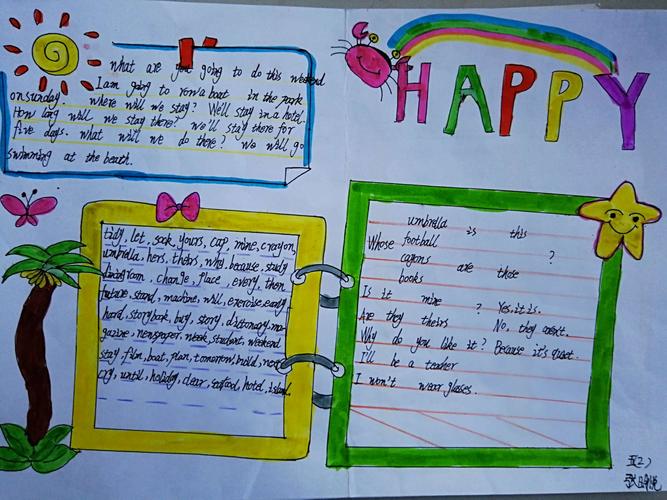 what are you going to do this weekend
I am going to row a boat in the park
on sunday. where will we stay? We'll stay in a hotel.
How long will we stay there? we'll stay there for
five days. what will we do there? We will go
swimming at the beath.
HAPPY
tidy, let, sock, yours, cap, mine, crayon,
umbrella, hers, theirs, why, because, study
change, place, every, then
future, stand, machine, will, exercise, early,
hard, storybook, buy, story, dictionary, ma-
gazine, newspaper, week, student, weekend
stay, film, boat, plan, tomorrow, build, near
cry, until, holiday, clear, seafood, hotel, island.
umbrella is this
Whose football ?
cayons are these
books
Is it mine ? Yes. it is.
Are they theirs No, they arent.
Why do you like it? Because it's quiet.
I'll be a teacher
I won't wear glasses.
五(2)